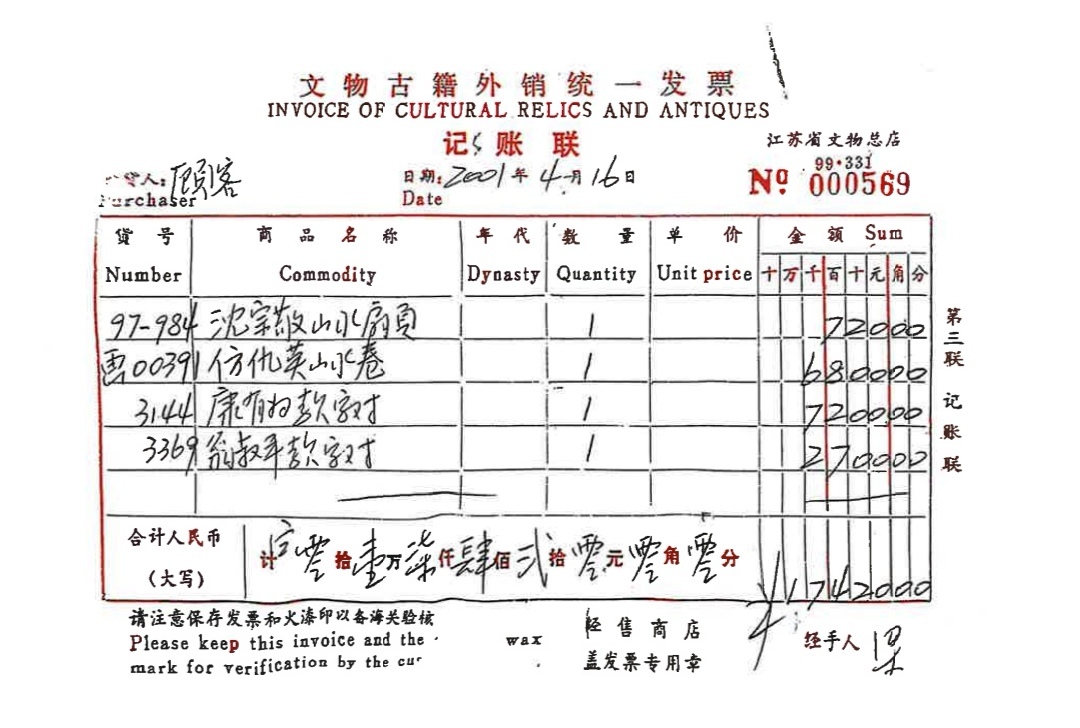 文物古籍外销统一发票
INVOICE OF CULTURAL RELICS AND ANTIQUES
记账联
江苏省文物总店
99·331
货人：顾客 日期：2001年4月16日 Nº 000569
Purchaser Date
货号 商品名称 年代 数量 单价 金额 Sum
Number Commodity Dynasty Quantity Unit price 十万千百十元角分
97-984 沈宗敬山水扇頁 1 72000
曹00391 仿仇英山水卷 1 680000
3144 康有为款字对 1 720000
3369 翁叔平款字对 1 270000
合计人民币（大写） 计 零拾壹万柒仟肆佰贰拾零元零角零分 ¥1742000
第三联 记账联
请注意保存发票和火漆印以备海关验核 经售商店
Please keep this invoice and the wax
mark for verification by the cus 盖发票专用章 经手人 梁